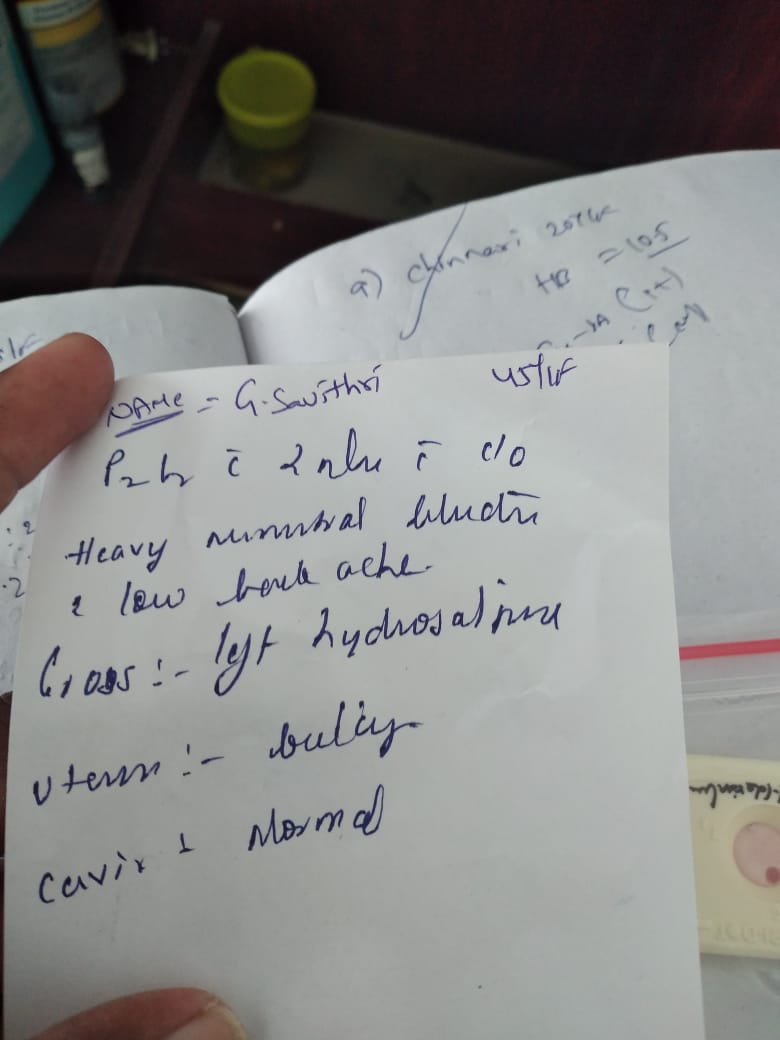 a) chinnari 20Y/F
HB = 10.5
NAME = G. Savithri 45y/F
P2L2 c̄ 2 nlu c̄ c/o
Heavy menstral bleedin
& low back ache.
Gross :- left hydrosalpinx
uterus :- bulky
Cervix : Normal